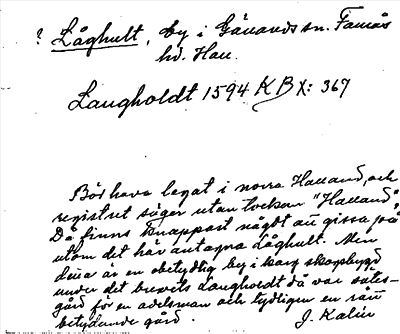 ? Låghult, by i Gällareds sn. Faurås
hd. Hall.
Laugholdt 1594 KB X: 367
Bör hava legat i norra Halland, och
registret säger utan tvekan "Halland".
Då finns knappast något att gissa på
utom det här antagna Låghult. Men
detta är en obetydlig by i karg skogsbygd
under det brevets Laugholdt då var sätes-
gård för en adelsman och tydligen en rätt
betydande gård. J. Kalén